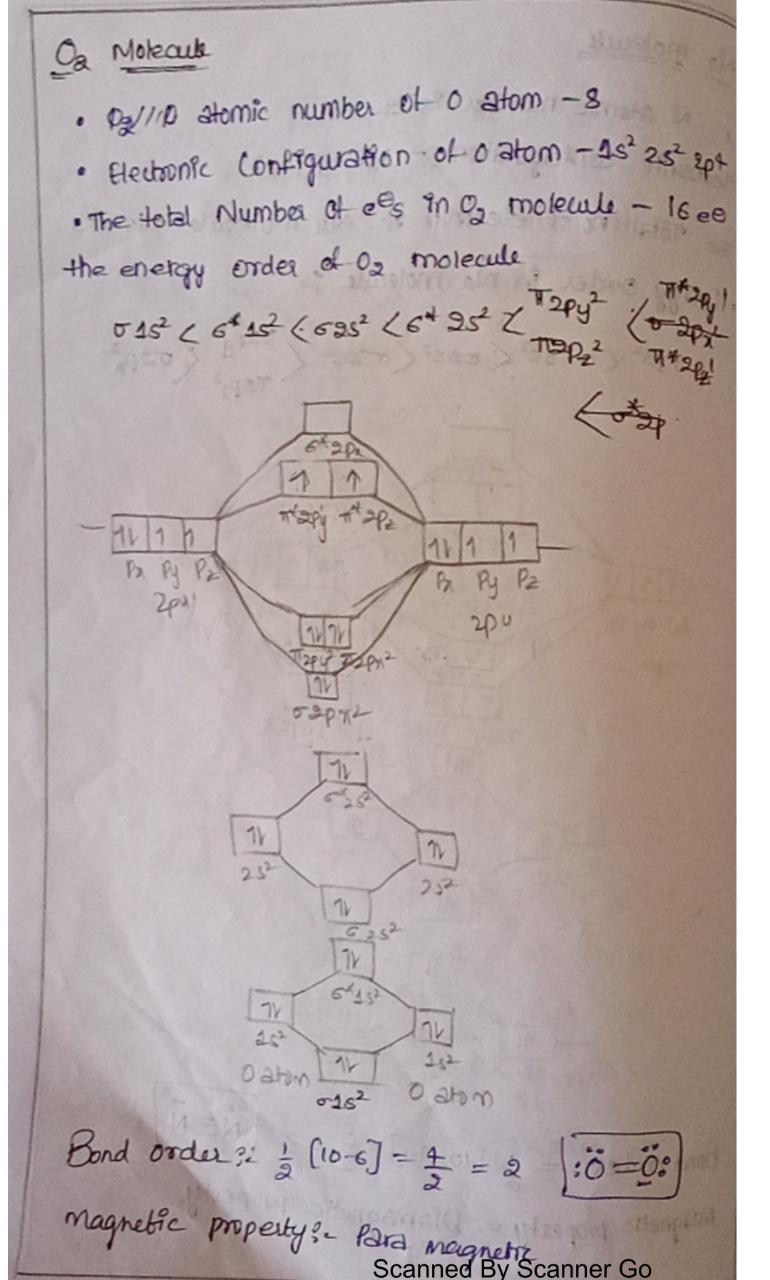 O2 Molecule
• atomic number of O atom - 8
• Electronic Configuration of O atom - 1s² 2s² 2p⁴
• The total Number of e⊖s in O2 molecule - 16 e⊖
the energy order of O2 molecule
σ1s² < σ*1s² < σ2s² < σ*2s² < π2py² < π*2py¹
π2pz² σ2px² π*2pz¹
< σ*2p
σ*2px
↑ ↑
π*2py π*2pz
↑↓ ↑ ↑ ↑↓ ↑ ↑
Px Py Pz Px Py Pz
2p⁴ 2p⁴
↑↓ ↑↓
π2py² π2px²
↑↓
σ2px²
↑↓
σ*2s²
↑↓ ↑↓
2s² 2s²
↑↓
σ2s²
↑↓
σ*1s²
↑↓ ↑↓
1s² 1s²
↑↓
O atom O atom
σ1s²
Bond order:- 1/2 [10-6] = 4/2 = 2 :Ö=Ö:
magnetic property:- Para magnetic
Scanned By Scanner Go